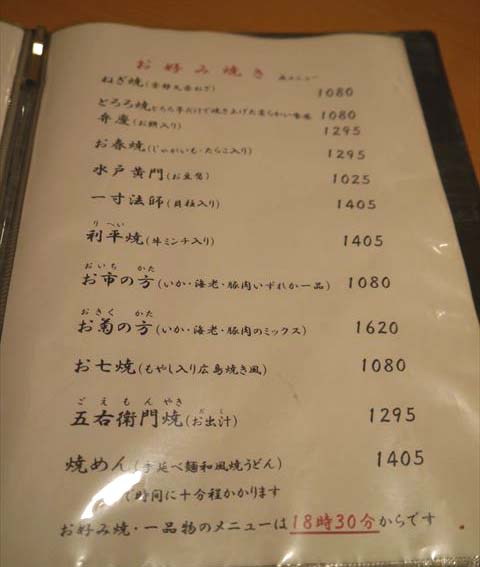 お好み焼き メニュー
ねぎ焼(京都九条ねぎ) 1080
とろろ焼(とろろ芋だけで焼き上げた柔らかい食感 1080
弁慶(お餅入り) 1295
お春焼(じゃがいも・たらこ入り) 1295
水戸黄門(お豆腐) 1025
一寸法師(貝柱入り) 1405
利平焼(牛ミンチ入り) 1405
りへい
おいち かた
お市の方(いか・海老・豚肉いずれか一品) 1080
おきく かた
お菊の方(いか・海老・豚肉のミックス) 1620
お七焼(もやし入り広島焼き風) 1080
ごえもんやき だし
五右衛門焼(お出汁) 1295
焼めん(手延べ麺和風焼うどん) 1405
時間に十分程かかります
お好み焼・一品物のメニューは18時30分からです